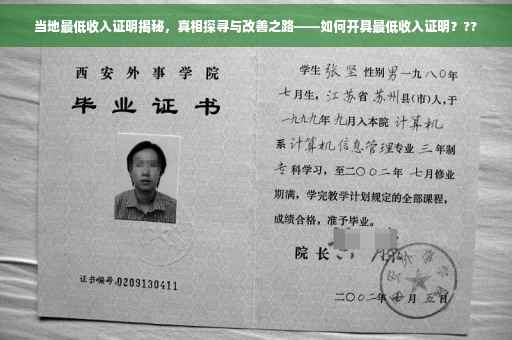 当地最低收入证明揭秘，真相探寻与改善之路——如何开具最低收入证明？??
西安外事学院
毕业证书
证书编号:0209130411
学生 张坚 性别 男 一九八〇年
七月生，江苏省 苏州县(市)人，于
一九九九年 九月入本院 计算机
系 计算机信息管理专业 三 年制
专 科学习，至二〇〇二年 七月修业
期满，学完教学计划规定的全部课程，
成绩合格，准予毕业。
院长
二〇〇二年 月 五 日